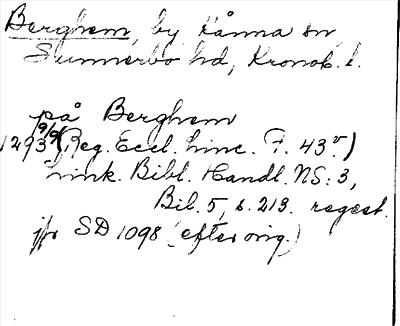 Berghem, by Kånna sn
Sunnerbo hd, Kronob. l.
på Berghem
1293 9/9 (Reg. Eccl. Linc. F. 43v.)
Link. Bibl. Handl. NS: 3,
Bil. 5, s. 213. regest.
jfr SD 1098 (efter orig.)